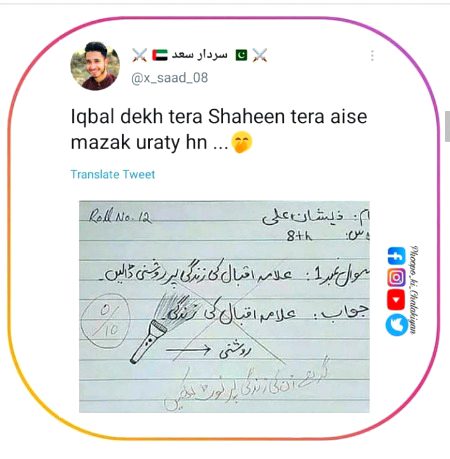 سردار سعد
@x_saad_08
Iqbal dekh tera Shaheen tera aise
mazak uraty hn ...
Translate Tweet
Roll No. 12
نام: ذیشان علی
8th
سوال نمبر 1: علامہ اقبال کی زندگی پر روشنی ڈالیں۔
جواب: علامہ اقبال کی زندگی
0/10
روشنی
گدھے ان کی زندگی پر نوٹ لکھیں
Phoopo_ki_Chalakiyan